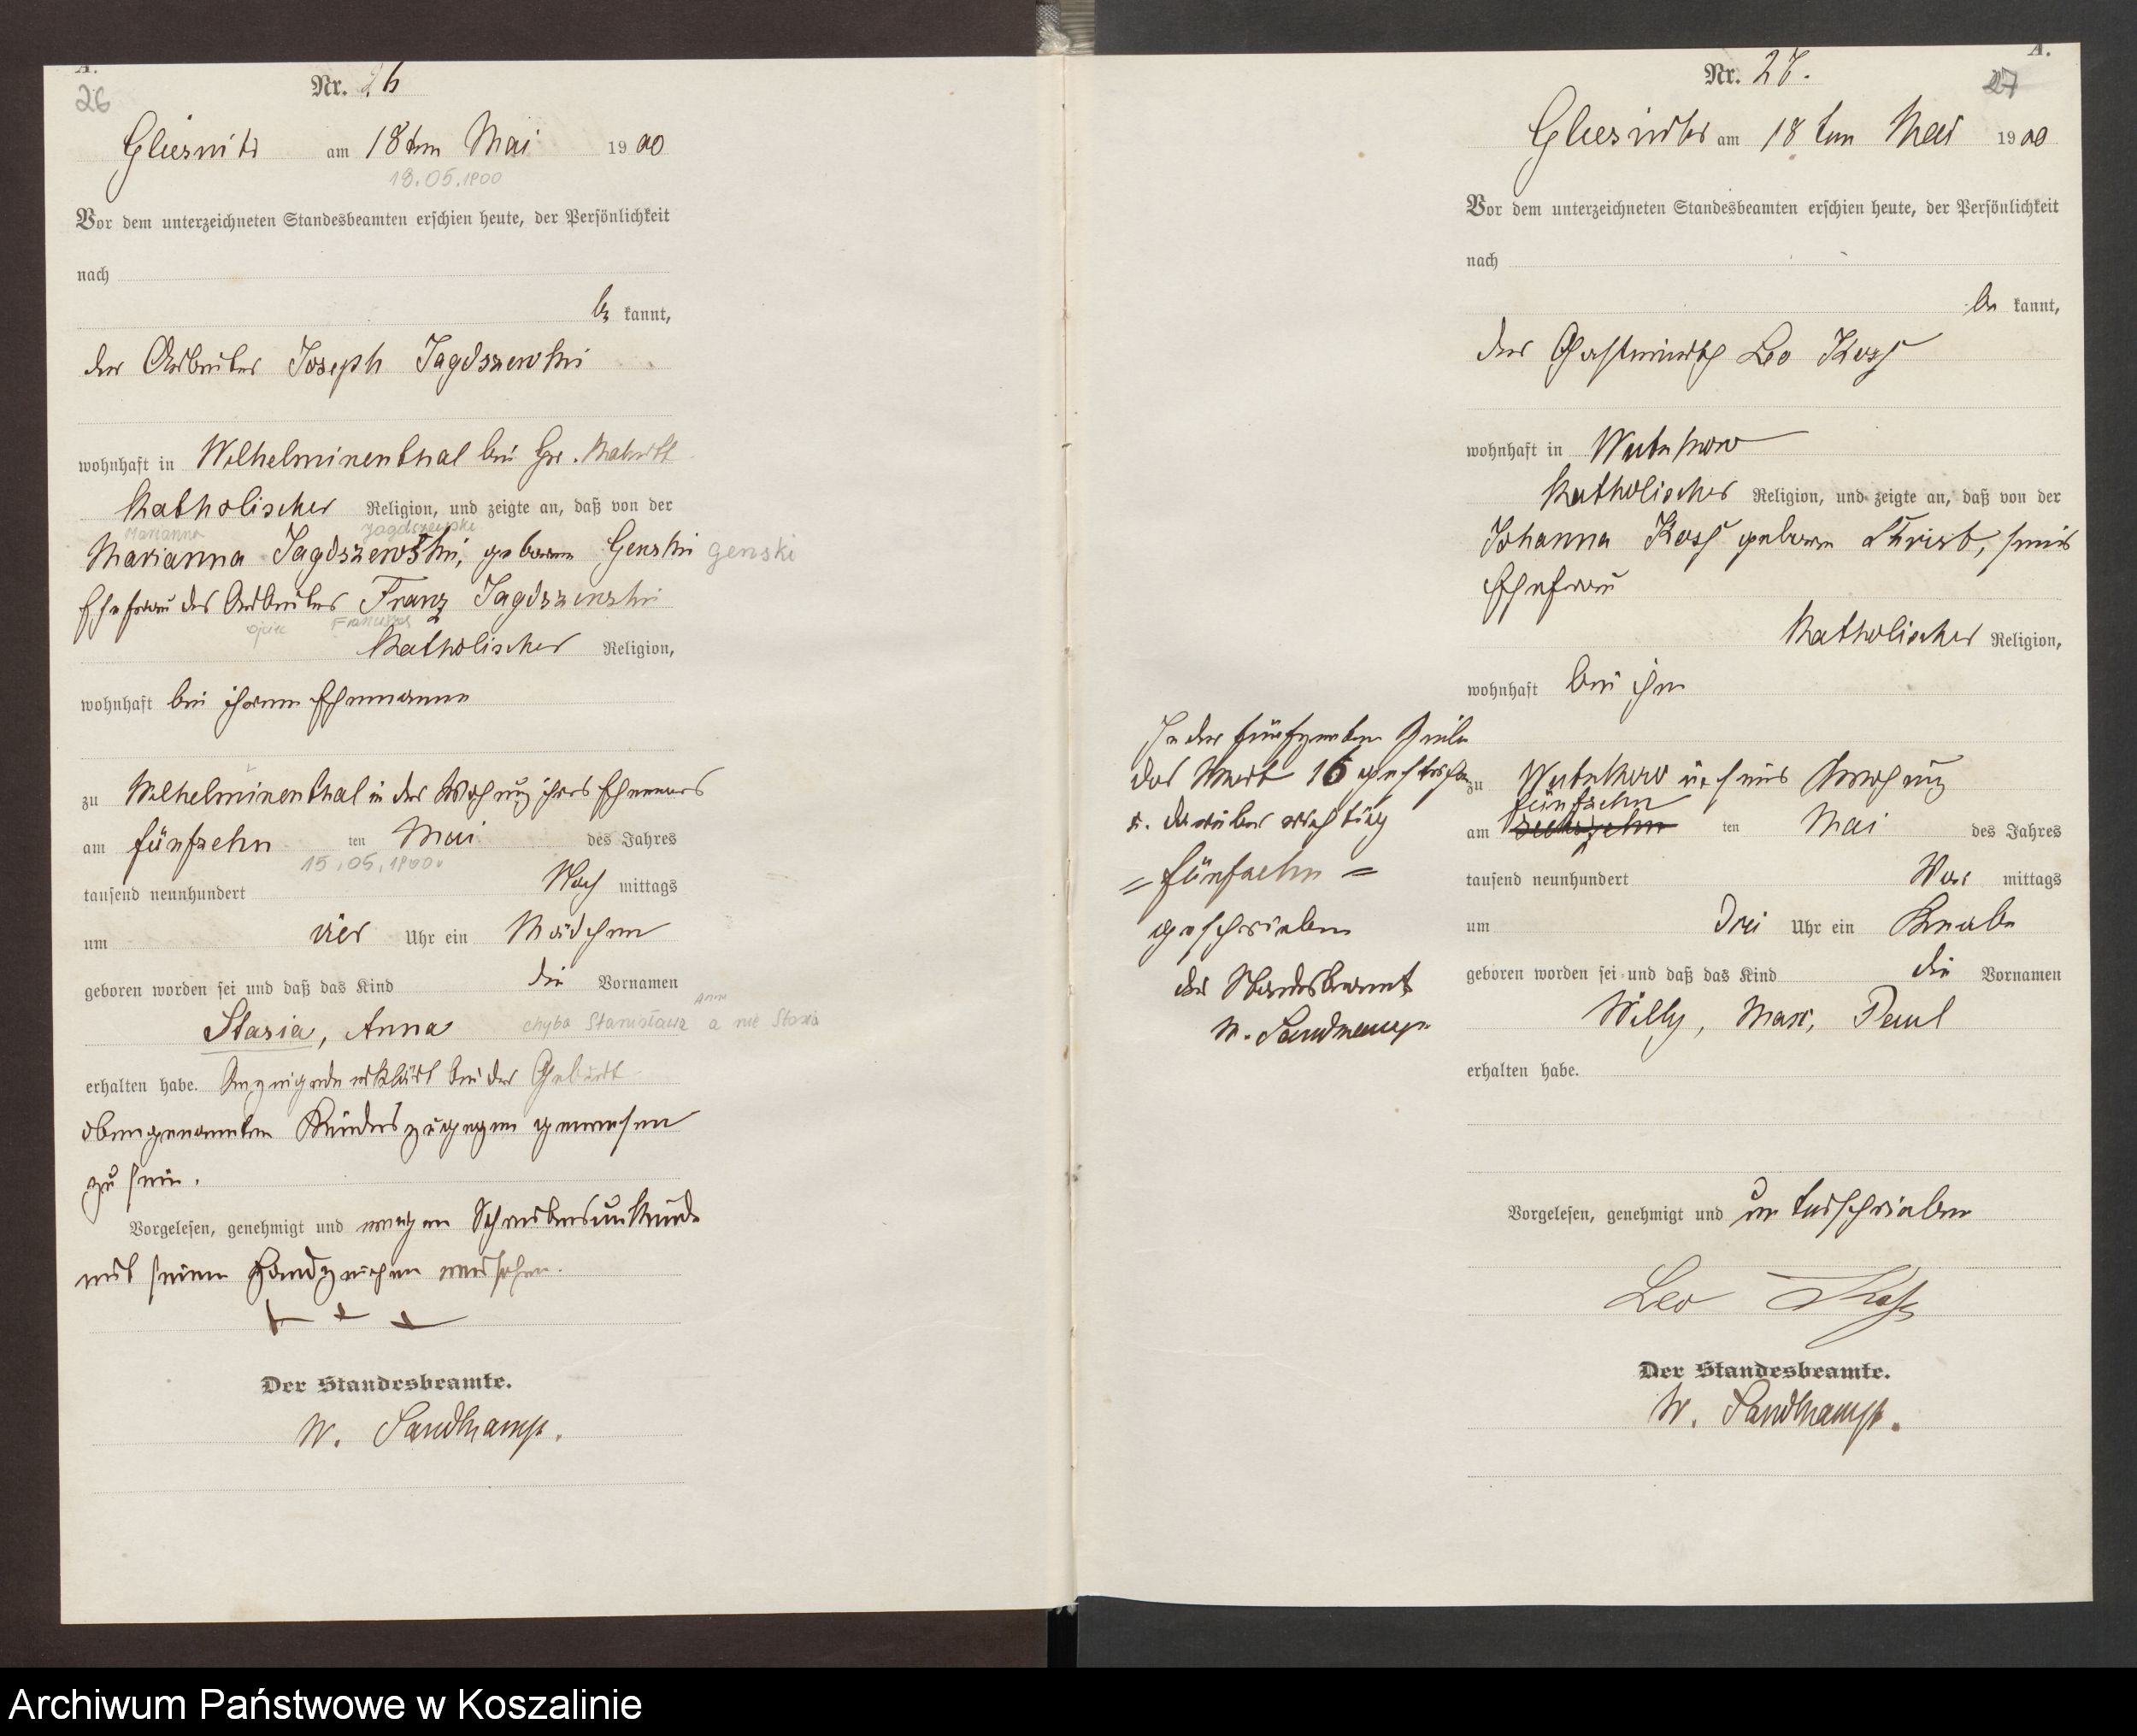 A.
26
Nr. 26
Gliesnitz am 18ten Mai 1900
18.05.1900
Vor dem unterzeichneten Standesbeamten erschien heute, der Persönlichkeit
nach
be kannt,
der Arbeiter Joseph Jagdszewski
wohnhaft in Wilhelminenthal bei Gr.
Katholischer Religion, und zeigte an, daß von der
Marianna Jagdszewski
Marianna Jagdszewski, geborene Genski genski
Ehefrau des Arbeiters Franz Jagdszewski
ojciec Franciszek
Katholischer Religion,
wohnhaft bei ihrem Ehemanne
zu Wilhelminenthal in der Wohnung ihres Ehemanns
am fünfzehn ten Mai des Jahres
15.05.1900.
tausend neunhundert Nach mittags
um vier Uhr ein Mädchen
geboren worden sei und daß das Kind die Vornamen
Anna
Stasia, Anna chyba Stanisława a nie Stasia
erhalten habe. Anzeigende erklärt bei der Geburt
obengenannten Kindes zugegen gewesen
zu sein.
Vorgelesen, genehmigt und wegen Schreibensunkunde
mit seinem Handzeichen versehen.
+ + +
Der Standesbeamte.
W. Sandkamp.
A.
27
Nr. 27.
Gliesnitz am 18ten Mai 1900
Vor dem unterzeichneten Standesbeamten erschien heute, der Persönlichkeit
nach
be kannt,
der Gastwirth Leo Koss
wohnhaft in Wutzkow
Katholischer Religion, und zeigte an, daß von der
Johanna Koss geborene Christ, seine
Ehefrau
Katholischer Religion,
wohnhaft bei ihm
zu Wutzkow in seine Wohnung
fünfzehn
am sechszehn ten Mai des Jahres
tausend neunhundert Vor mittags
um drei Uhr ein Knabe
geboren worden sei und daß das Kind die Vornamen
Willy, Max, Paul
erhalten habe.
Vorgelesen, genehmigt und unterschrieben
Leo Koss
Der Standesbeamte.
W. Sandkamp.
In der fünfzehnten Zeile
das Wort 16 gestrichen
u. darüber richtig
= fünfzehn =
geschrieben
der Standesbeamte
W. Sandkamp
Archiwum Państwowe w Koszalinie